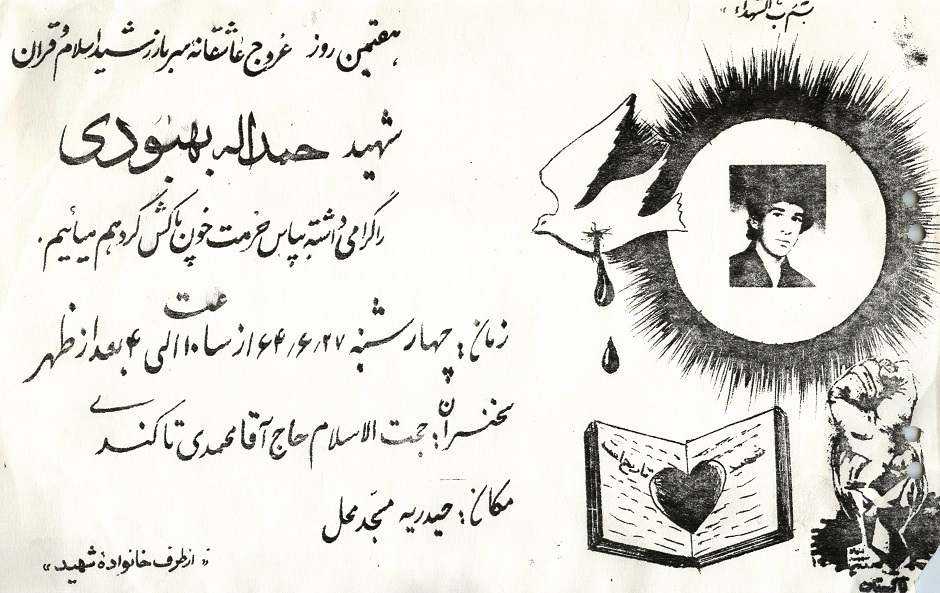 بسم رب الشهداء
هفتمین روز عروج عاشقانه سرباز رشید اسلام و قران
شهید حمداله بهبودی
را گرامی داشته بپاس حرمت خون پاکش گردهم میائیم.
زمان: چهارشنبه ۶۴/۶/۲۷ از ساعت ۱۰ الی ۴ بعد از ظهر
سخنران: حجت الاسلام حاج آقا محمدی تاکندی
مکان: حیدریه مسجد محل
« از طرف خانواده شهید »
شهید
تاریخ است
بنیاد
شهید
تاکستان